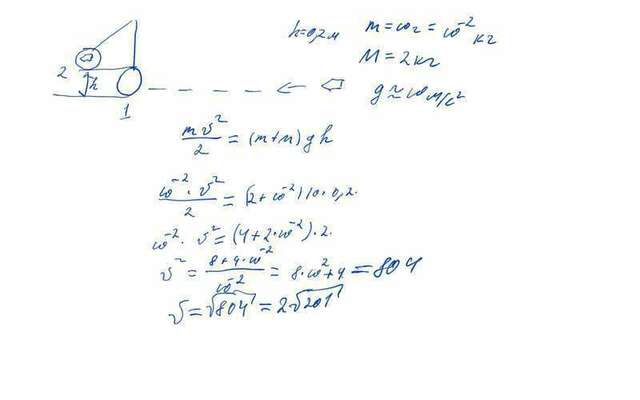 h=0,2м m=10г=10⁻² кг
M=2кг
2 h g≈10м/с²
1
mv²/2 = (m+M)gh
10⁻²·v²/2 = (2+10⁻²)10·0,2.
10⁻²·v²=(4+2·10⁻²)·2.
v² = 8+4·10⁻²/10⁻² = 8·10²+4 = 804
v=√804=2√201